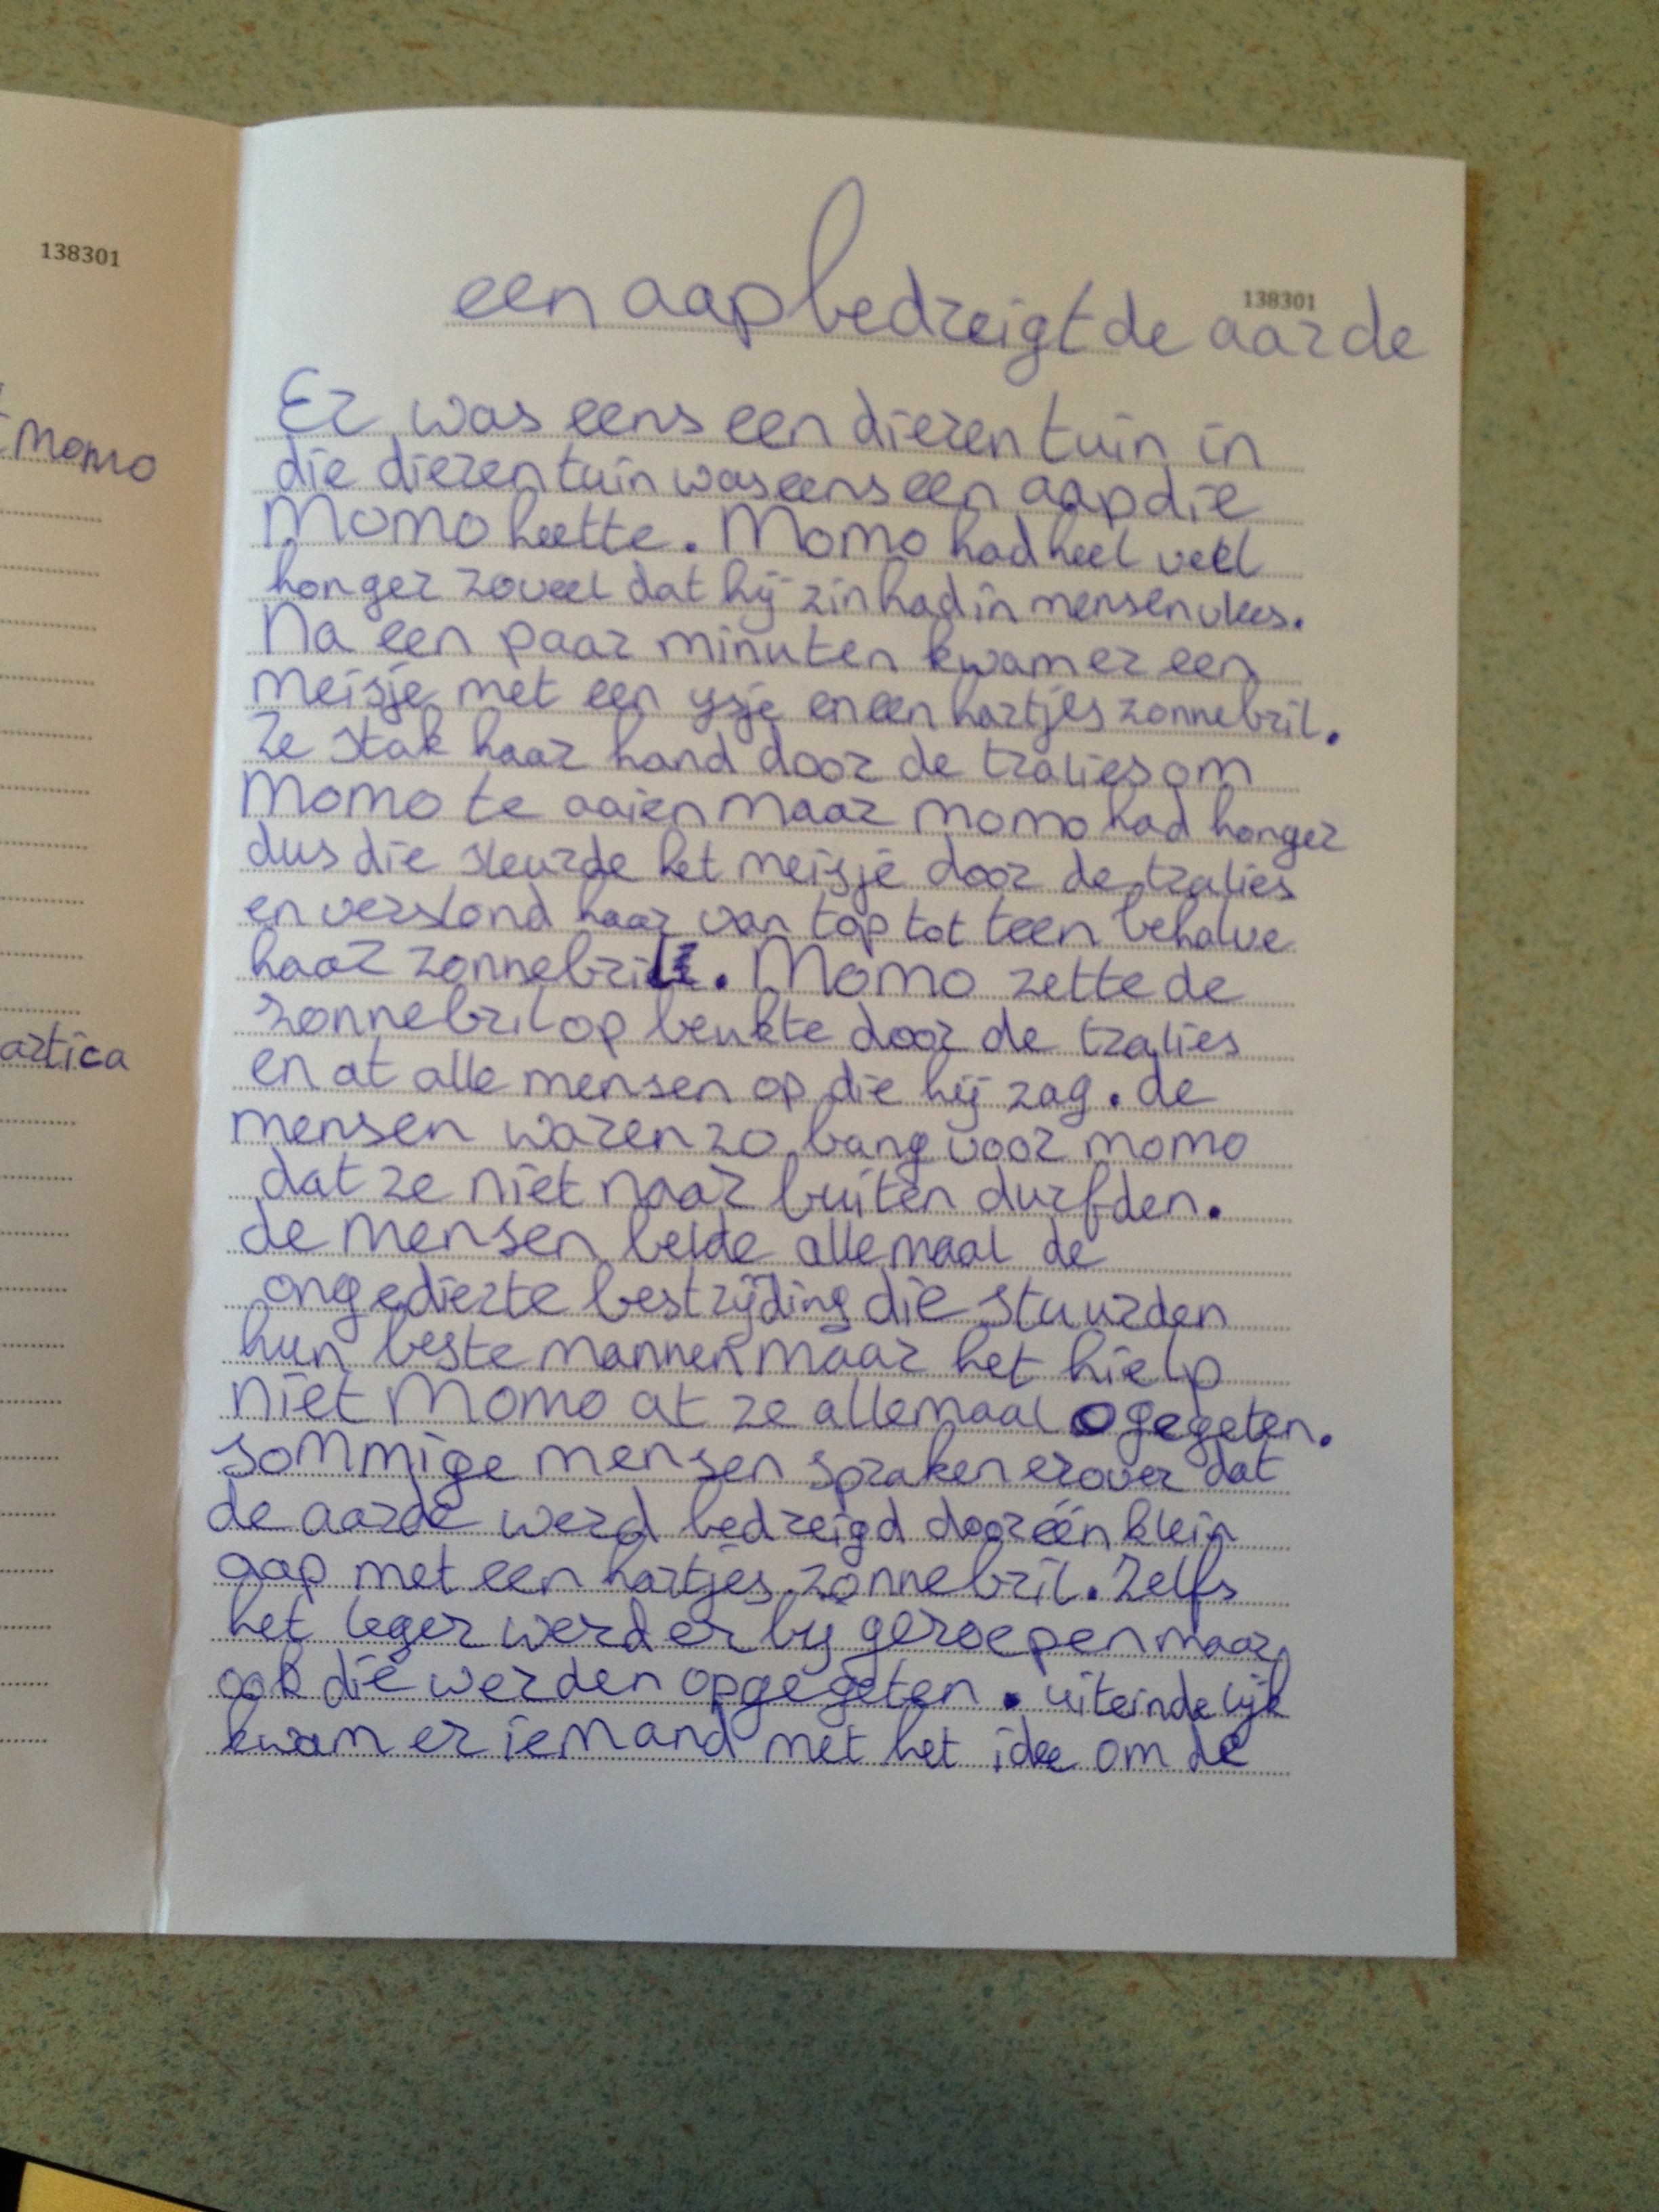 138301
momo
artica
138301
een aap bedreigt de aarde
Er was eens een dierentuin in
die dierentuin was eens een aap die
Momo heette. Momo had heel veel
honger zoveel dat hij zin had in mensenvlees.
Na een paar minuten kwam er een
meisje met een ysje en een hartjes zonnebril.
Ze stak haar hand door de tralies om
Momo te aaien maar momo had honger
dus die sleurde het meisje door de tralies
en verslond haar van top tot teen behalve
haar zonnebril. Momo zette de
zonnebril op beukte door de tralies
en at alle mensen op die hij zag. de
mensen waren zo bang voor momo
dat ze niet naar buiten durfden.
de mensen belde allemaal de
ongedierte bestrijding die stuurden
hun beste mannen maar het hielp
niet Momo at ze allemaal ogegeten.
sommige mensen spraken erover dat
de aarde werd bedreigd door één klein
aap met een hartjes zonnebril. Zelfs
het leger werd er bij geroepen maar
ook die werden opgegeten. uiteindelijk
kwam er iemand met het idee om de